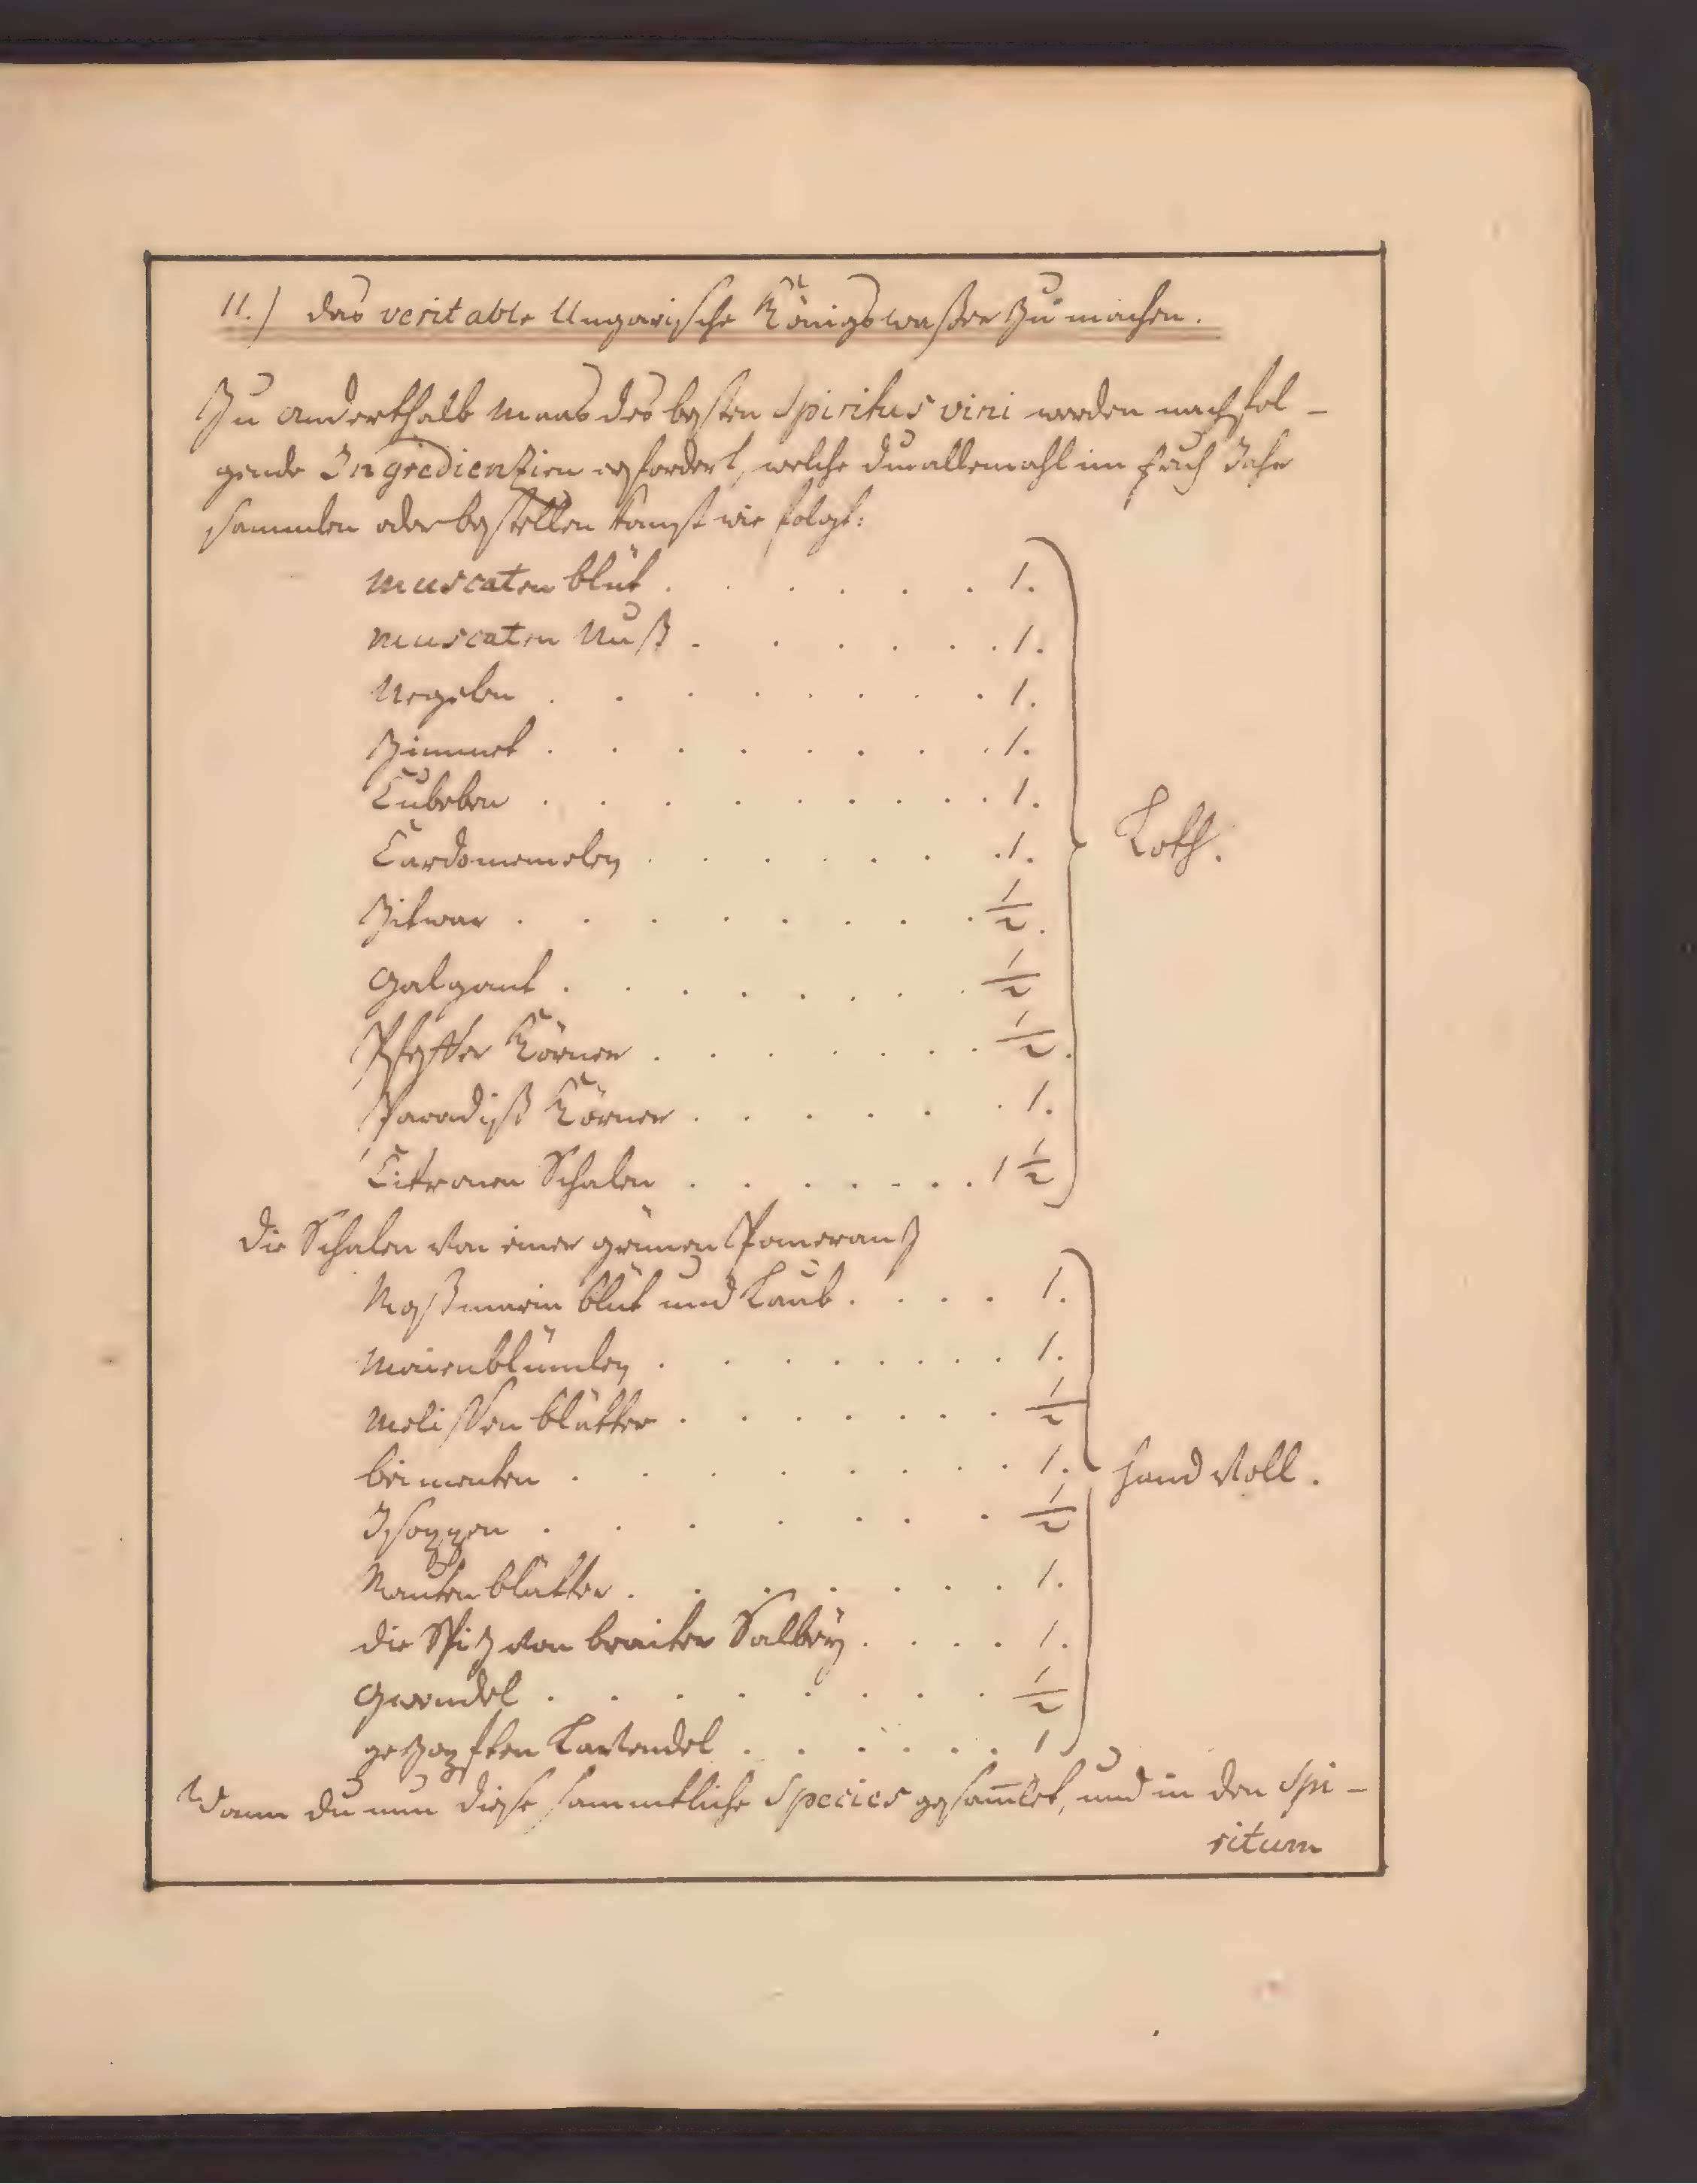 11.) das veritable Ungarische Königswasser zu machen.
Zu anderthalb Maas des besten Spiritus vini werden nachfol-
gende Ingredienzien erfordert, welche du allemahl im früh Jahr
sammlen oder bestellen kanst wie folgt:
Muscaten blüt . . . . . . 1.
Muscaten Nuß . . . . . . 1.
Negelen . . . . . . . . 1.
Zimmet . . . . . . . . 1.
Cubeben . . . . . . . . . 1.
Cardomemelen . . . . . . 1.
Loth.
Zitwar . . . . . . . . 1/2.
Galgant . . . . . . . . 1/2
Pfeffer Körner . . . . . . . 1/2.
Paradiß Körner . . . . . . 1.
Citronen Schalen . . . . . . . 1 1/2
die Schalen von einer grünen Pomeranz
Roßmarin blüt und Laub . . . . 1.
Maienblümlen . . . . . . . . 1.
Melissen blätter . . . . . . . 1/2
beimenten . . . . . . . . 1.
Hand voll.
Isoppen . . . . . . . 1/2
Rauten blätter . . . . . . . 1.
die Spiz von breiter Salbey . . . . 1.
Quendel . . . . . . . . 1/2
gezopften Lavendel . . . . . . 1
Wann du nun diese sammtliche Species gesam̅let, und in den Spi-
ritum